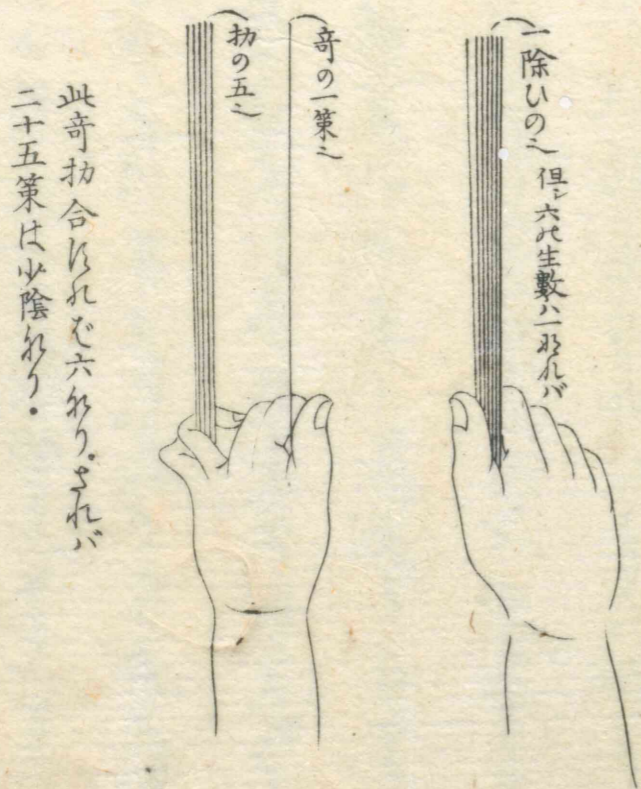 一除ひのこ
但シ六の生數ハ一なれバ
奇の一策こ
扐の五こ
此奇扐合すれば六なり。されバ
二十五策は少陰なり。